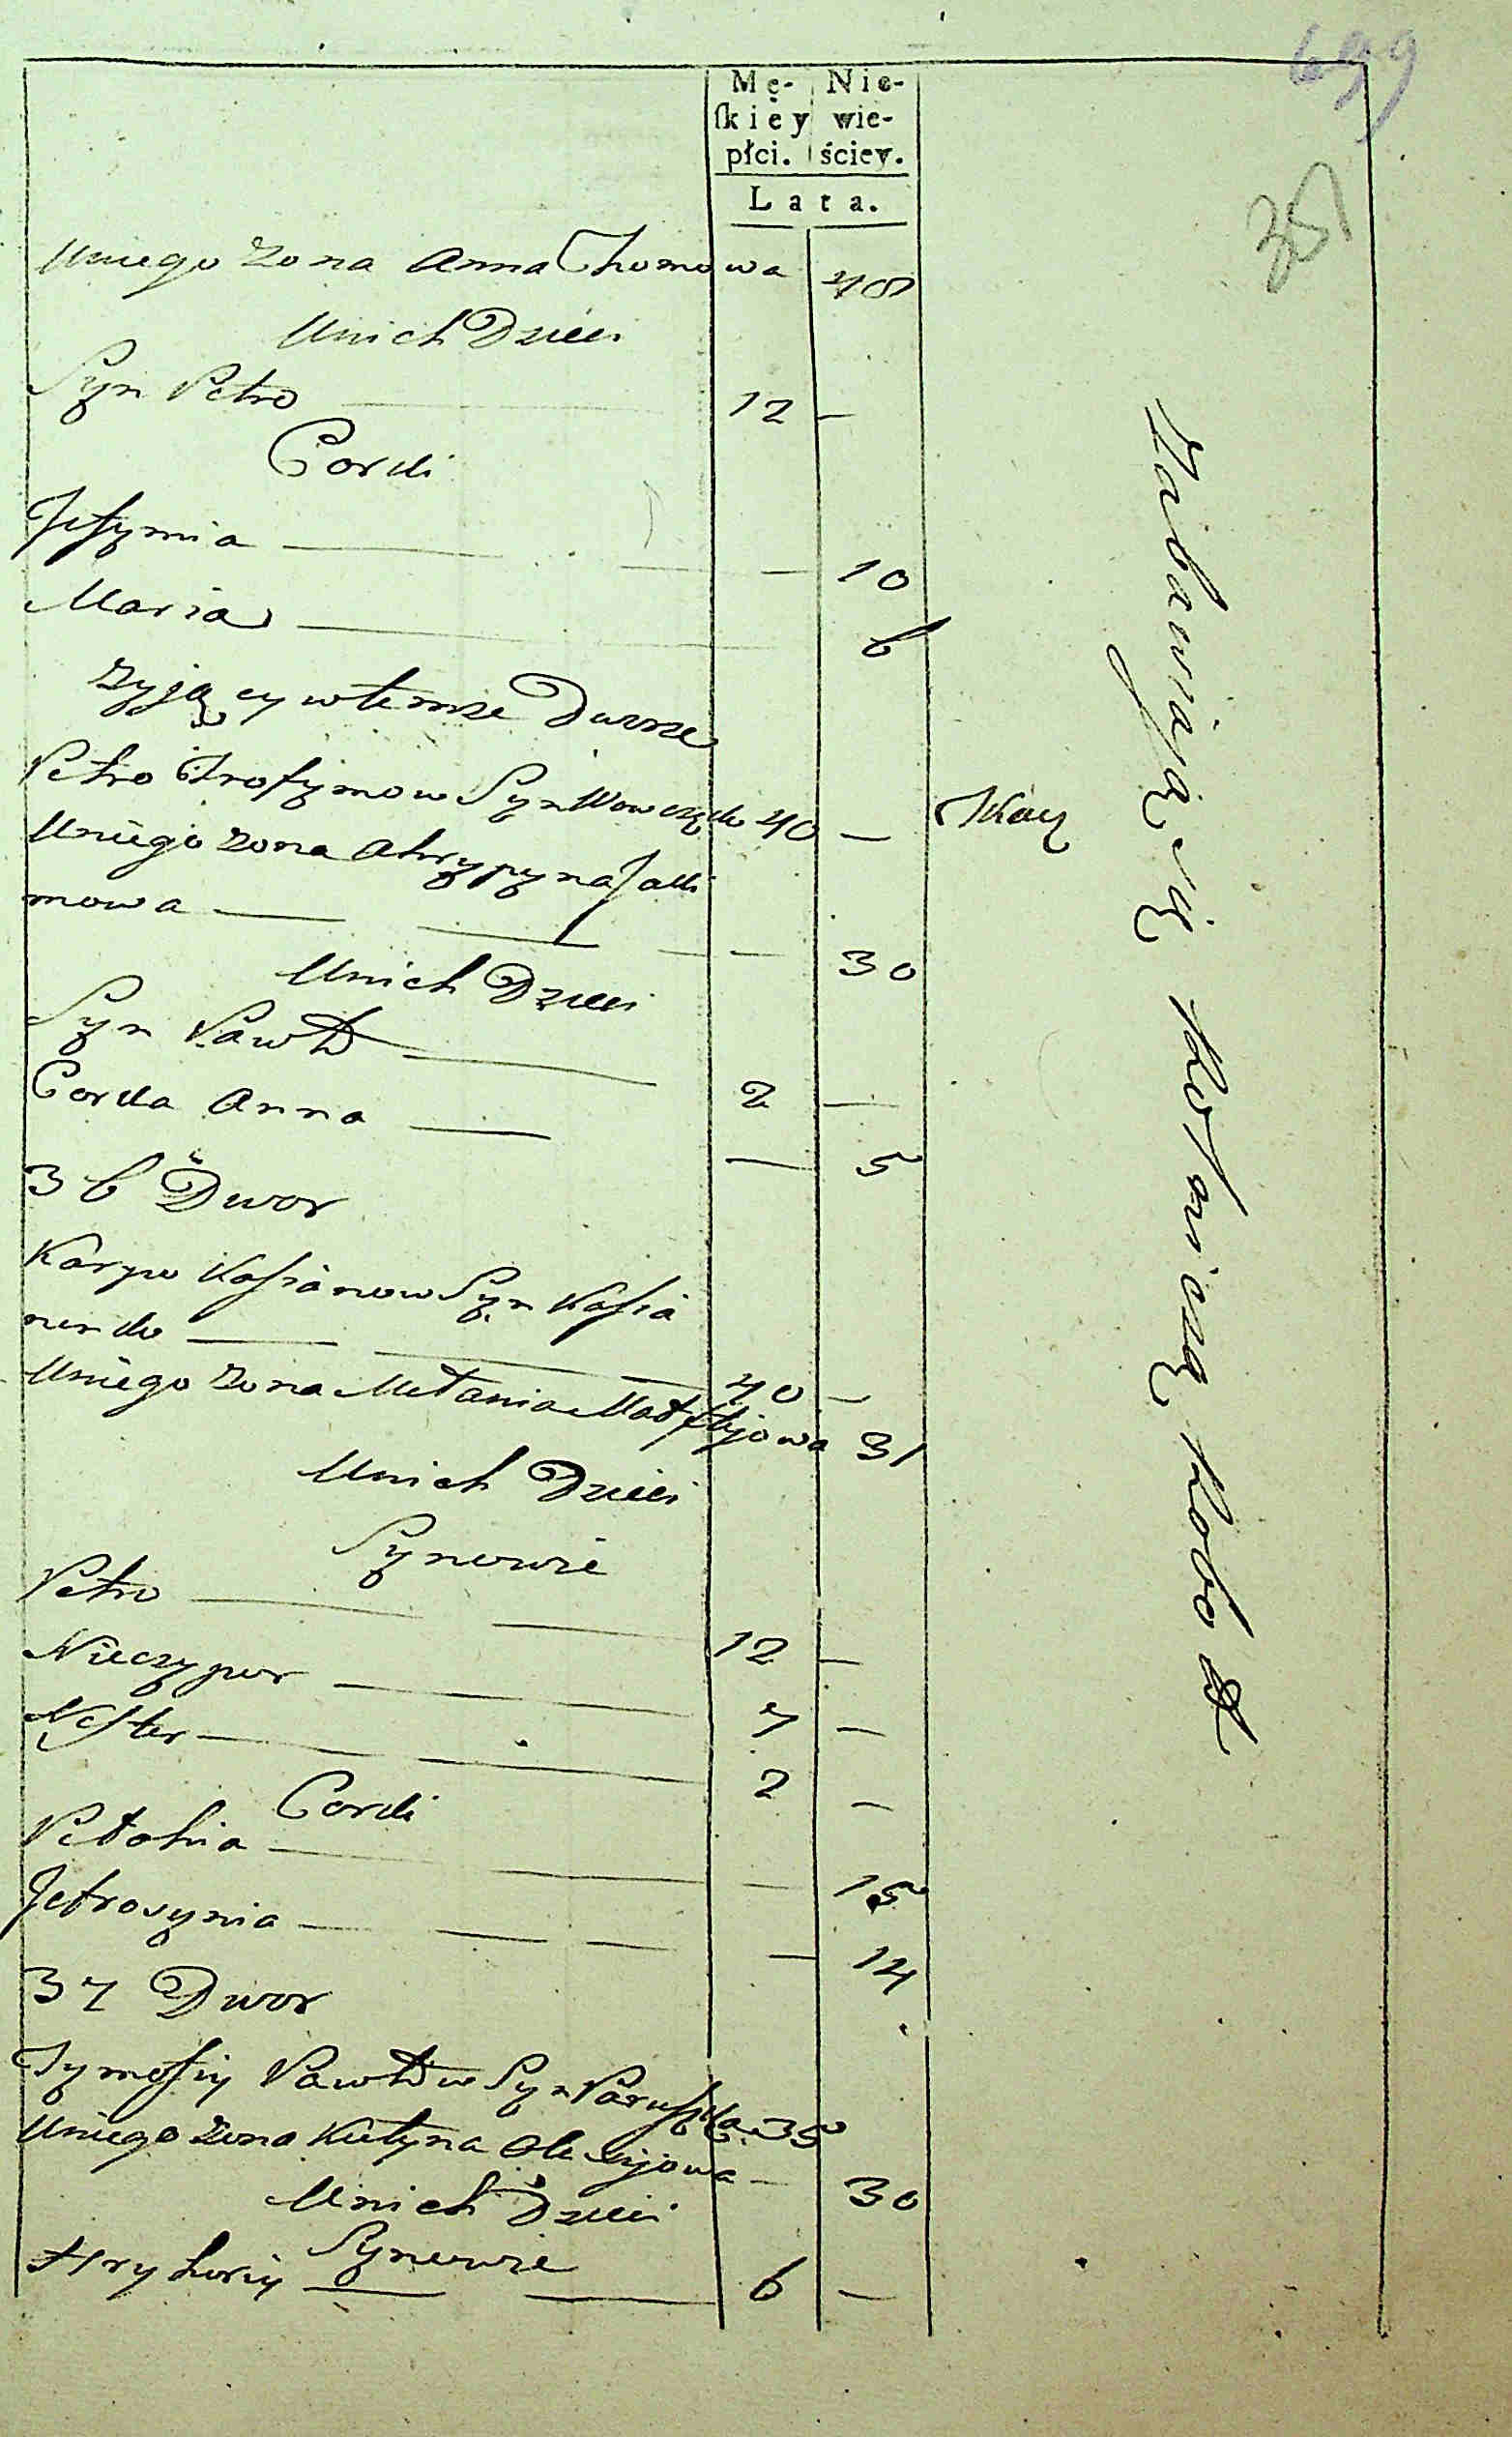 699
351
Mę- Nie-
ſkiey wie-
płci. ściey.
Lata.
Uniego Zona Anna Thomowa 48
Unich Dzieci
Syn Petro 12 —
Corki
Jefymia — 10
Maria — 6
Zyjący wtemze Dworze
Petro Trofymow Syn Wowczęko 40 — Tkacz
Uniego Zona Ahrypyna Jakli
mowa — 30
Unich Dzieci
Syn Pawło 2 —
Corka Anna — 5
36 Dwor
Karpo Kasianow Syn Kasia
nenko — 40 —
Uniego Zona Melania Matftijowa 31
Unich Dzieci
Synowie
Petro 12 —
Nieczypor 7 —
Nester 2 —
Corki
Pełahia — 15
Jefrosynia — 14
37 Dwor
Tymofiy Pawłow Syn 35
Uniego Zona Katyna Olexijowa — 30
Unich Dzieci
Synowie
Hryhoriy 6 —
Zabawiaią się Rolniczą Robotą